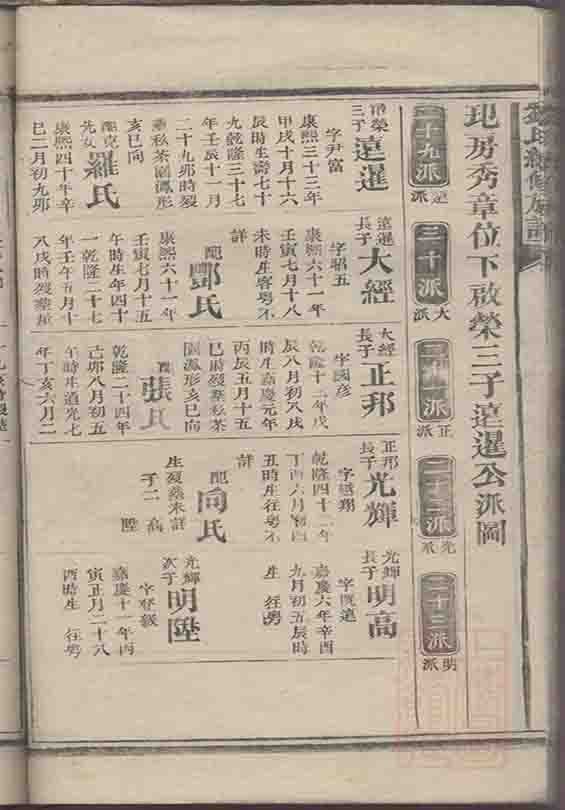 玘房秀章位下啟榮三子遠暹公派圖
二十九派
遠派
三十派
大派
正派
光派
三十三派
明派
啟榮
三子
遠暹
字尹富
康熙三十三年
甲戌十月十六
辰時生壽七十
九乾隆三十七
年壬辰十一月
二十九卯時歿
葬私茶園鳳形
亥巳向
配克
先女
羅氏
康熙四十年辛
巳二月初九卯
遠暹
長子
大經
字昭五
康熙六十一年
壬寅七月十八
未時生客粵不
詳
配鄧氏
康熙六十一年
壬寅七月十五
午時生年四十
一乾隆二十七
年壬午五月十
八戌時歿葬
大經
長子
正邦
字國彥
乾隆十三年戊
辰八月初八戌
時生嘉慶元年
丙辰五月十五
巳時歿葬私茶
園鳳形亥巳向
配張氏
乾隆二十四年
己卯八月初五
午時生道光七
年丁亥六月二
正邦
長子
光輝
字廷翔
乾隆四十二年
丁酉六月初四
丑時生往粵不
詳
配向氏
生歿葬未詳
子二 高
陞
光輝
長子
明高
字既遠
嘉慶六年辛酉
九月初五辰時
生 往粵
光輝
次子
明陞
字登級
嘉慶十一年丙
寅正月二十八
酉時生 往粵